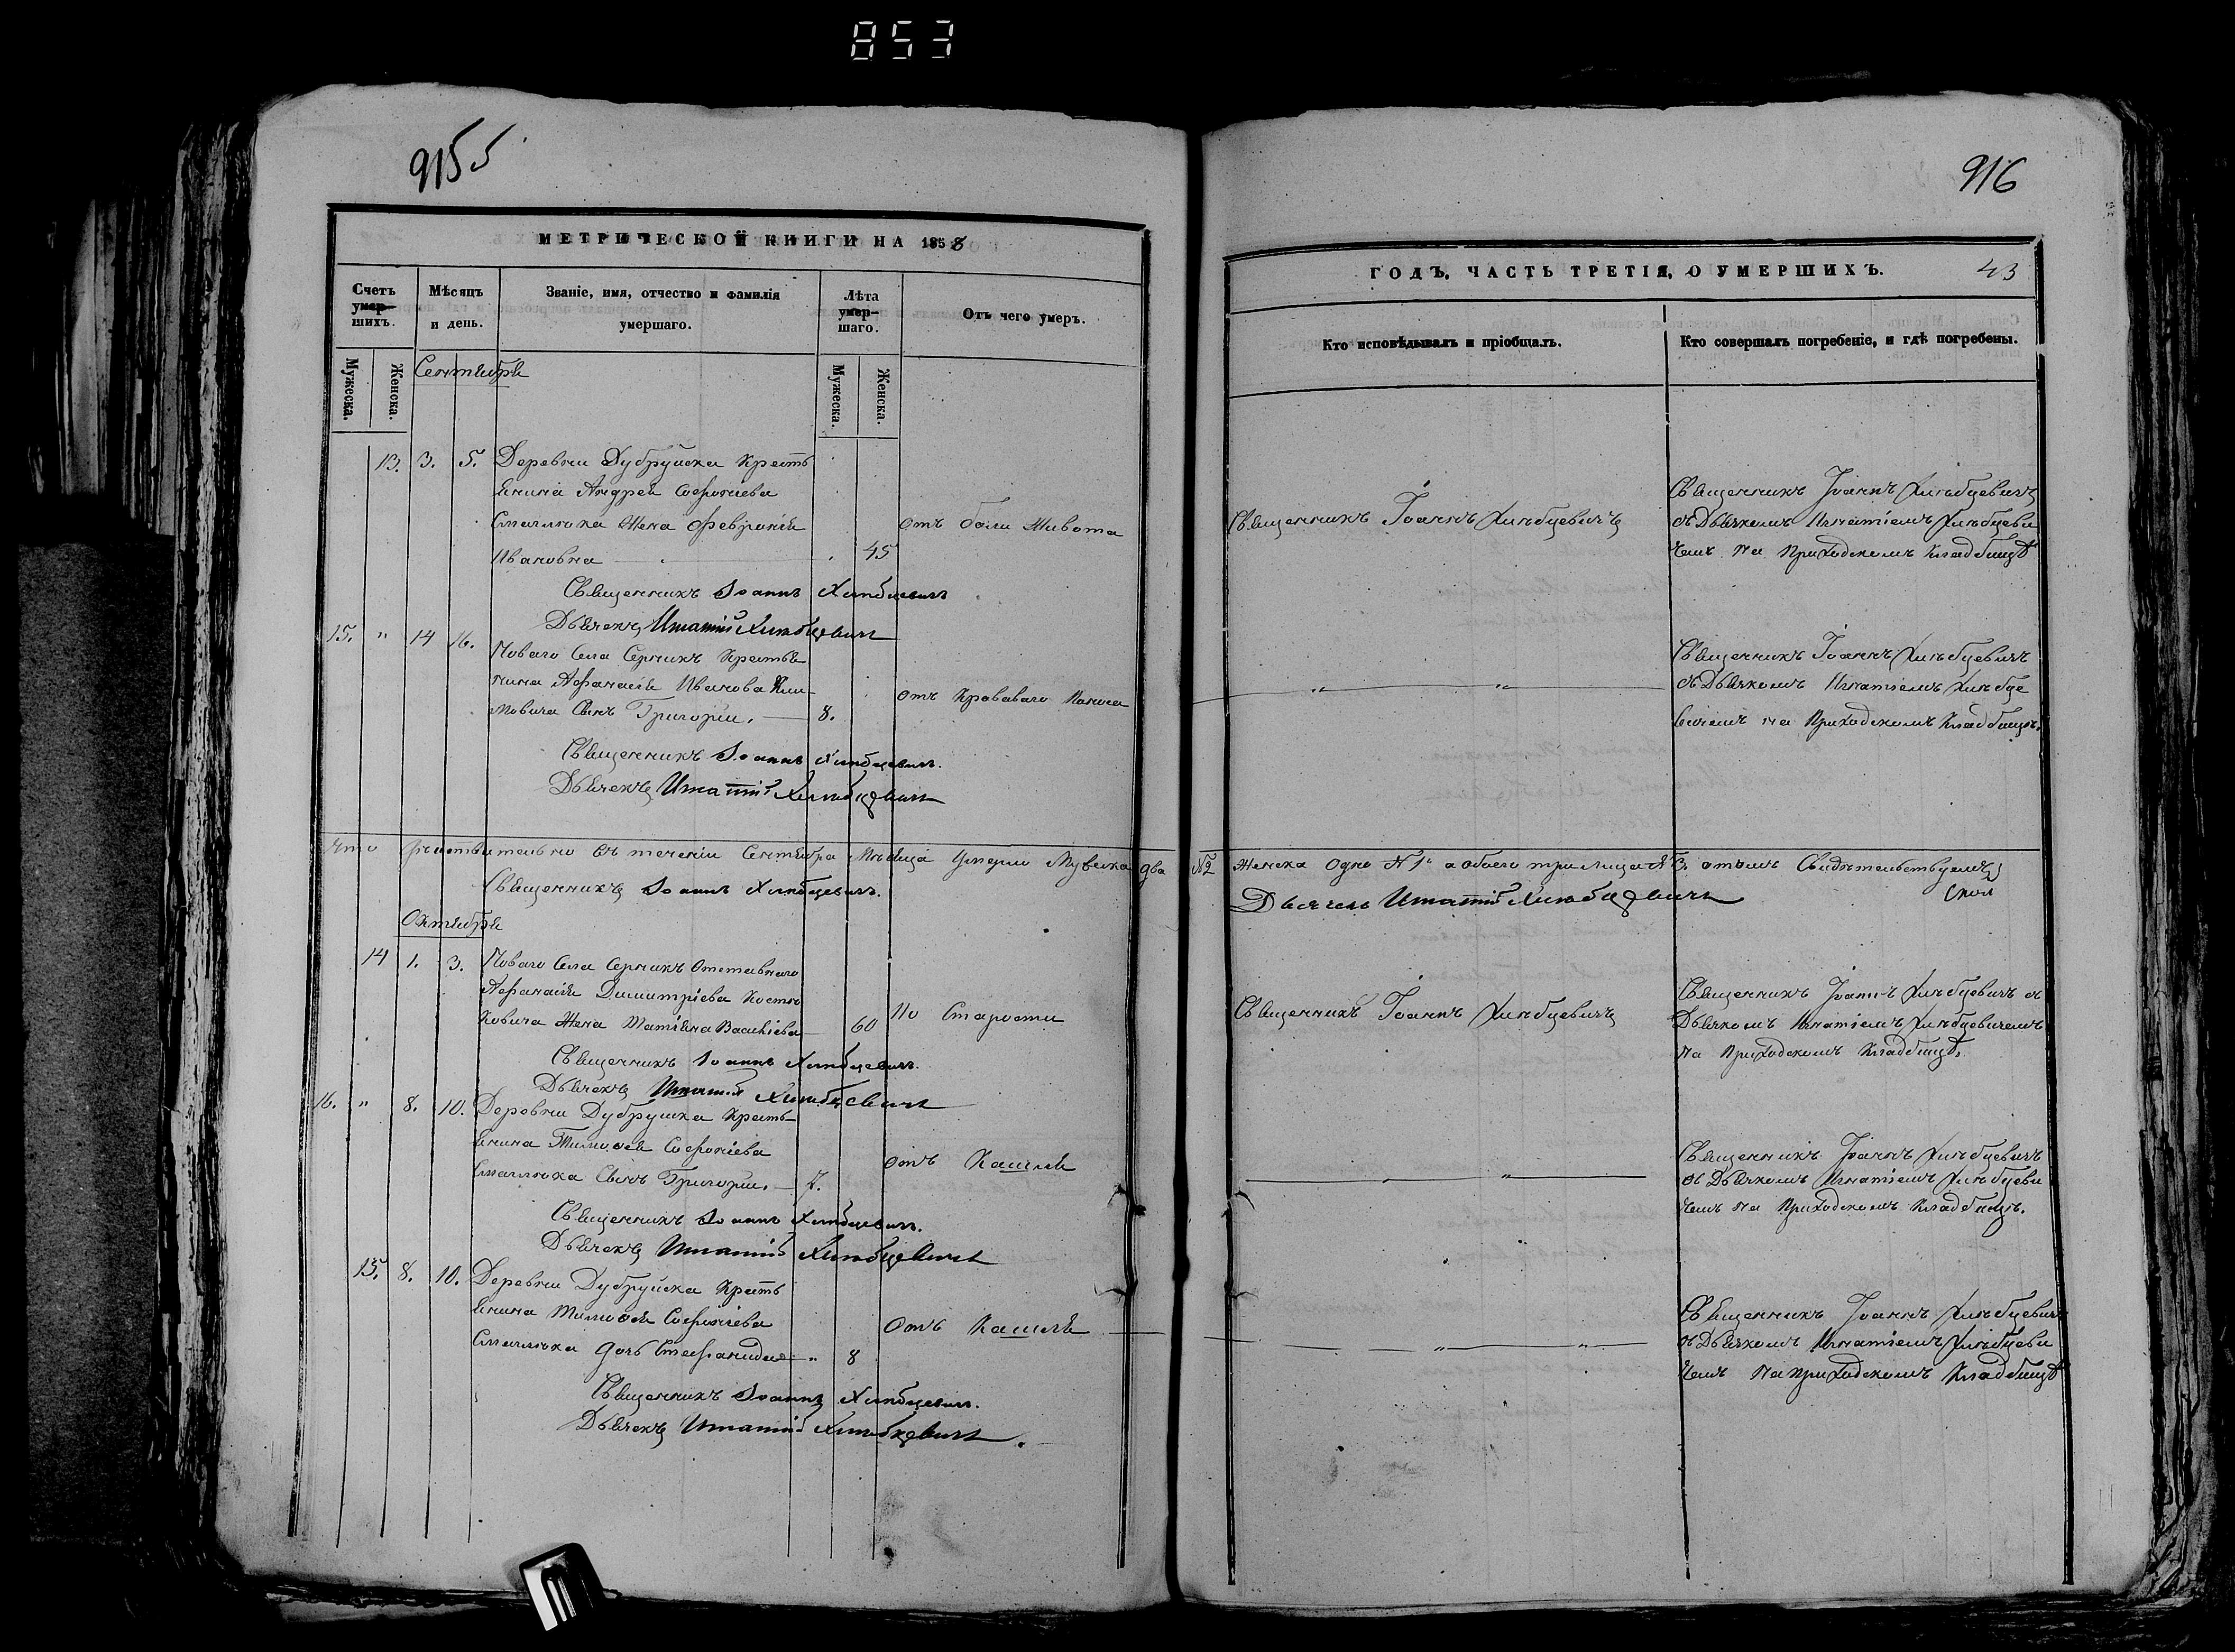 853
915 5
916
МЕТРИЧЕСКОЙ КНИГИ НА 1858
ГОДЪ, ЧАСТЬ ТРЕТІЯ, О УМЕРШИХЪ.
43
Счетъ умер-шихъ.
Мѣсяцъ и день.
Званіе, имя, отчество и фамилія умершаго.
Лѣта умер-шаго.
Отъ чего умеръ.
Кто исповѣдывалъ и пріобщалъ.
Кто совершалъ погребеніе, и гдѣ погребены.
Мужеска.
Женска.
Мужеска.
Женска.
Сентября
13. 3. 5. Деревни Дубруйска Кресть
янина Андрея Софроніева
Смаллюха Жена Февронія
Ивановна 45
отъ боли Живота
Священникъ Іоаннъ Хлѣбцевичъ
Священникъ Іоаннъ Хлѣбцевичъ
съ Дьячкомъ Игнатіемъ Хлѣбцеви
чемъ на Приходскомъ Кладбищѣ
Священникъ Іоаннъ Хлѣбцевичъ
Дьячекъ Игнатій Хлѣбцевичъ
15. " 14 16. Новаго Села Серникъ Крестья
нина Афанасія Иванова Кли-
мовича Сынъ Григорій. 8.
отъ Кроваваго Поноса
" "
Священникъ Іоаннъ Хлѣбцевичъ
съ Дьячкомъ Игнатіемъ Хлѣбце
вичемъ на Приходскомъ Кладбищѣ.
Священникъ Іоаннъ Хлѣбцевичъ.
Дьячекъ Игнатій Хлѣбцевичъ
Что дѣйствительно въ теченіи Сентября Мѣсяца Умерло Мужеска два №2 Женска Одно №1 а обоего три Лица №3. отомъ Свидѣтельствуемъ
Священникъ Іоаннъ Хлѣбцевичъ.
Дьячекъ Игнатій Хлѣбцевичъ
Октября
14 1. 3. Новаго Села Серникъ Отставнаго
Афанасія Димитріева Костю
ковича Жена Матіяна Васильева 60
По Старости
Священникъ Іоаннъ Хлѣбцевичъ
Священникъ Іоаннъ Хлѣбцевичъ съ
Дьячкомъ Игнатіемъ Хлѣбцевичемъ
на Приходскомъ Кладбищѣ.
Священникъ Іоаннъ Хлѣбцевичъ.
Дьячекъ Игнатій Хлѣбцевичъ
16. " 8. 10. Деревни Дубруйска Кресть-
янина Тимофея Софроніева
Смаллюха Сынъ Григорій. 7.
отъ Кашля
"
Священникъ Іоаннъ Хлѣбцевичъ
съ Дьячкомъ Игнатіемъ Хлѣбцеви
чемъ на Приходскомъ Кладбищѣ.
Священникъ Іоаннъ Хлѣбцевичъ.
Дьячекъ Игнатій Хлѣбцевичъ
15. 8. 10. Деревни Дубруйска Кресть
янина Тимофея Софроніева
Смаллюха дочь Стефанида " 8
Отъ Кашля
" "
Священникъ Іоаннъ Хлѣбцевичъ
съ Дьячкомъ Игнатіемъ Хлѣбцеви
чемъ на приходскомъ Кладбищѣ
Священникъ Іоаннъ Хлѣбцевичъ.
Дьячекъ Игнатій Хлѣбцевичъ.